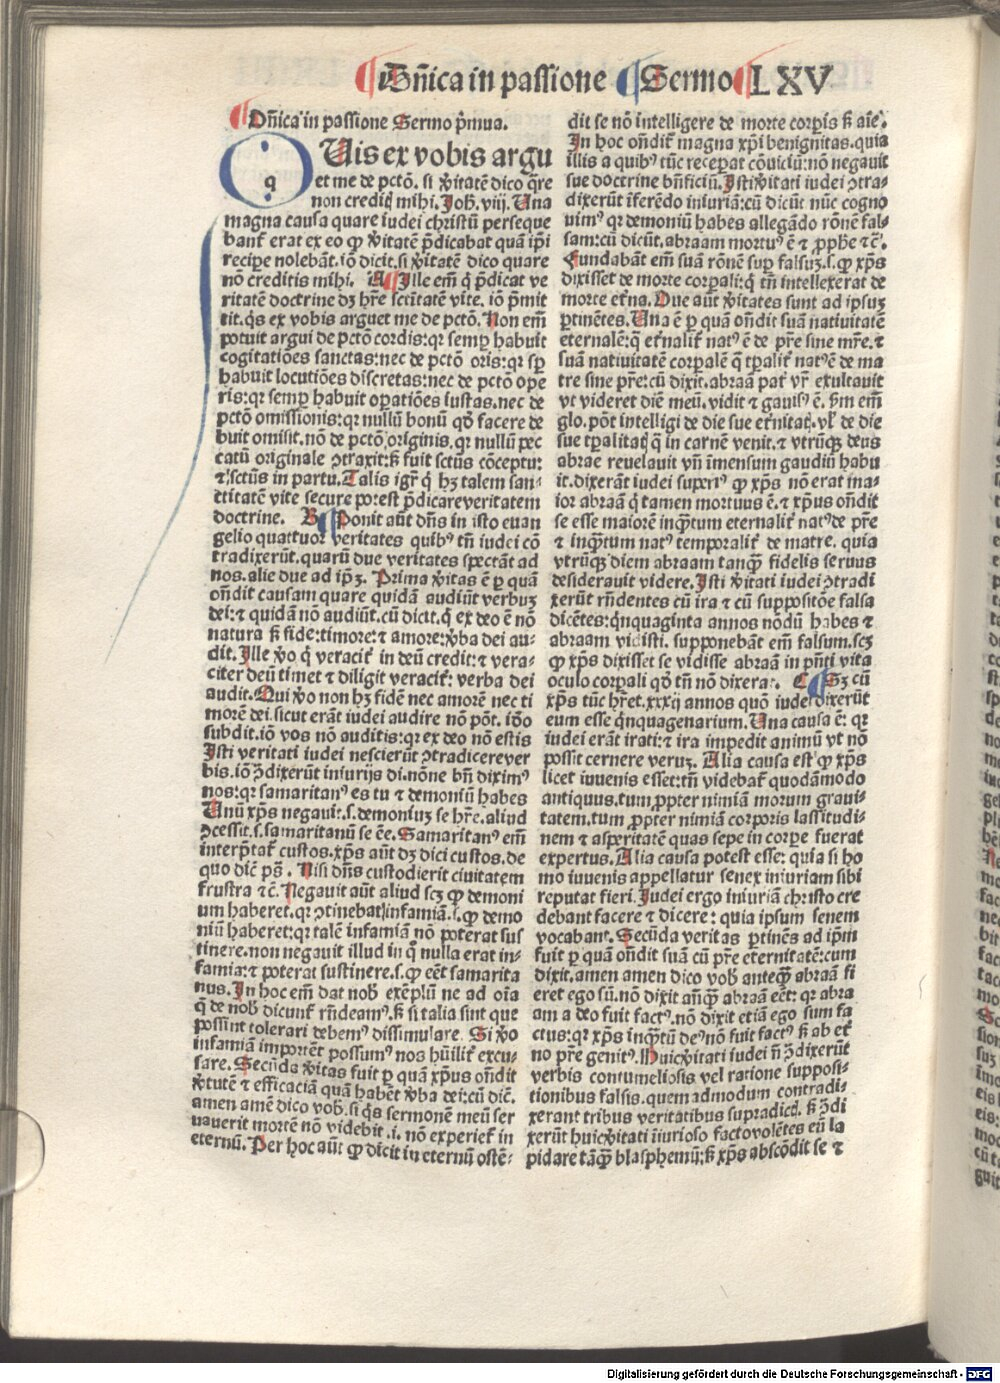 Dn̄ica in passione Sermo LXV
Dn̄ica in passione Sermo p̄mus.
QUis ex vobis argu
et me de pctō. si v̄itatē dico q̄re
non credit̄ mihi. Joh̄. viij. Una
magna causa quare iudei christū perseque
bant̄ erat ex eo ꝙ v̄itatē p̄dicabat quā ip̄i
recipe nolebāt. iō dicit. si v̄itatē dico quare
nō creditis mihi. A Ille em̄ q̇ p̄dicat ve
ritatē doctrine dꝫ hr̄e sctītatē vite. iō p̄mit
tit. q̇s ex vobis arguet me de pctō. Non em̄
potuit argui de pctō cordis: qꝛ semꝑ habuit
cogitatiōes sanctas: nec de pctō oris: qꝛ sꝑ
habuit locutiōes discretas: nec de pctō ope
ris: qꝛ semꝑ habuit oꝑatiōes iustas. nec de
pctō omissionis: qꝛ nullū bonū qd̄ facere de
buit omisit. nō de pctō originis. qꝛ nullū pec
catū originale ↄtraxit: sꝫ fuit sctūs cōceptus
⁊ sctūs in partu. Talis igr̄ q̇ hꝫ talem san-
ctitatē vite secure potest p̄dicare veritatem
doctrine. B Ponit aūt dn̄s in isto euan
gelio quattuor veritates quibꝰ tn̄ iudei cō
tradixerūt. quarū due veritates spectāt ad
nos. alie due ad ip̄ꝫ. Prima v̄itas ē ꝑ quā
on̄dit causam quare quidā audiūt verbuꝫ
dei: ⁊ quidā nō audiūt. cū dicit. q̇ ex deo ē nō
natura sꝫ fide: timore: ⁊ amore: v̄ba dei au-
dit. Ille v̄o q̇ veracit̄ in deū credit: ⁊ vera-
citer deū timet ⁊ diligit veracit̄: verba dei
audit. Qui v̄o non hꝫ fidē nec amorē nec ti
morē dei. sicut erāt iudei audire nō pōt. iō
subdit. iō vos nō auditis: qꝛ ex deo nō estis
Isti veritati iudei nescierūt ↄtradicere ver
bis. iō ↄ̄dixerūt iniurijs di. nōne bn̄ diximꝰ
nos: qꝛ samaritanꝰ es tu ⁊ demoniū habes
Unū xp̄s negauit. s. demoniuꝫ se hr̄e. aliud
ↄcessit. s. samaritanū se eē. Samaritanꝰ em̄
interp̄tat̄ custos. xp̄s aūt dꝫ dici custos. de
quo diē ps̄. Nisi dn̄s custodierit ciuitatem
frustra ⁊c̄. Negauit aūt aliud scꝫ ꝙ demoni
um haberet. qꝛ ↄtinebat infamiā. s. ꝙ demo
niū haberet: qꝛ talē infamiā nō poterat sus
tinere. non negauit illud in q̇ nulla erat in-
famia: ⁊ poterat sustinere. s. ꝙ eēt samarita
nus. In hoc em̄ dat nob̄ exēplū ne ad oīa
q̄ de nob̄ dicunt̄ rn̄deamꝰ. sꝫ si talia sint que
possint tolerari debemꝰ dissimulare. Si v̄o
infamiā importēt possumꝰ nos hūilit̄ excu-
sare. Secūda v̄itas fuit ꝑ quā xp̄us on̄dit
v̄tutē ⁊ efficaciā quā habēt v̄ba dei: cū dic̄.
amen amē dico vob̄. si q̇s sermonē meū ser
uauerit mortē nō videbit .i. nō experiet̄ in
eternū. Per hoc aūt ꝙ dicit in eternū ostē-
dit se nō intelligere de morte corꝑis sꝫ aīe.
In hoc on̄dit̄ magna xp̄i benignitas. quia
illis a quibꝰ tūc receperat cōuiciū: nō negauit
sue doctrine bn̄ficiū. Isti v̄itati iudei ↄtra-
dixerūt īferēdo iniuriā: cū dicūt nūc cogno
uimꝰ qꝛ demoniū habes allegādo rōnē fal-
sam: cū dicūt. abraam mortuꝰ ē ⁊ ꝓphe ⁊c̄.
Fundabāt em̄ suā rōnē suꝑ falsuꝫ. s. ꝙ xp̄s
dixisset de morte corꝑali: q̇ tn̄ intellexerat de
morte et̄na. Due aūt v̄itates sunt ad ipsuꝫ
ꝑtinētes. Una ē ꝑ quā on̄dit suā natiuitatē
eternalē: q̄ et̄nalit̄ natꝰ ē de pr̄e sine mr̄e. ⁊
suā natiuitatē corpalē q̄ tꝑalit̄ natꝰ ē de ma
tre sine pr̄e: cū dixit. abraā pat̄ vr̄ exultauit
vt videret diē meū. vidit ⁊ gauisꝰ ē. Sm̄ em̄
glo. pōt intelligi de die sue et̄nitat̄. vl̓ de die
sue tꝑalitat̄ q̄ in carnē venit. ⁊ vtrūqꝫ deus
abrae reuelauit vn̄ īmensum gaudiū habu
it. dixerāt iudei superiꝰ ꝙ xp̄s nō erat ma-
ior abraā q̇ tamen mortuus ē. ⁊ xp̄us on̄dit
se esse maiorē inq̄ptum eternalit̄ natꝰ de pr̄e
⁊ inq̄tum natꝰ temporalit̄ de matre. quia
vtrūqꝫ diem abraam tanq̄ꝫ fidelis seruus
desiderauit videre. Isti v̄itati iudei ↄtradi
xerūt rn̄dentes cū ira ⁊ cū suppositōe falsa
dicētes: q̇nquaginta annos nōdū habes ⁊
abraam vidisti. supponebāt em̄ falsum. scꝫ
ꝙ xp̄s dixisset se vidisse abraā in pn̄ti vita
oculo corpali qd̄ tn̄ nō dixerat. C Sꝫ cū
xp̄s tūc hr̄et. xxxij annos quō iudei dixerūt
eum esse q̇nquagenarium. Una causa ē: qꝛ
iudei erāt irati: ⁊ ira impedit animū vt nō
possit cernere veruꝫ. Alia causa est ꝙ xp̄s
licet iuuenis esset: tn̄ videbat̄ quodāmodo
antiquus. tum ꝓpter nimiā morum graui-
tatem. tum ꝓpter nimiā corporis lassitudi-
nem ⁊ asperitatē quas sepe in corpe fuerat
expertus. Alia causa potest esse: quia si ho
mo iuuenis appellatur senex iniuriam sibi
reputat fieri. Judei ergo iniuriā christo cre
debant facere ⁊ dicere: quia ipsum senem
vocabant. Secūda veritas ꝑtinēs ad ip̄m
fuit ꝑ quā on̄dit suā cū pr̄e eternitatē: cum
dixit. amen amen dico vob̄ anteq̄ꝫ abraā fi
eret ego sū. nō dixit an̄q̄ꝫ abraā eēt: qꝛ abra
am a deo fuit factꝰ. nō dixit etiā ego sum fa
ctus: qꝛ xp̄s inq̄tū deꝰ nō fuit factꝰ sꝫ ab et̄
no pr̄e genitꝰ. Huic v̄itati iudei n̄ ↄ̄dixerūt
verbis contumeliosis vel ratione supposi-
tionibus falsis. quem admodum contradi-
xerant tribus veritatibus supradict̄. sꝫ ↄ̄di
xerūt huic v̄itati īiurioso facto volētes eū la
pidare tāq̄ꝫ blasphemū: sꝫ xp̄s abscōdit se ⁊
Digitalisierung gefördert durch die Deutsche Forschungsgemeinschaft - DFG